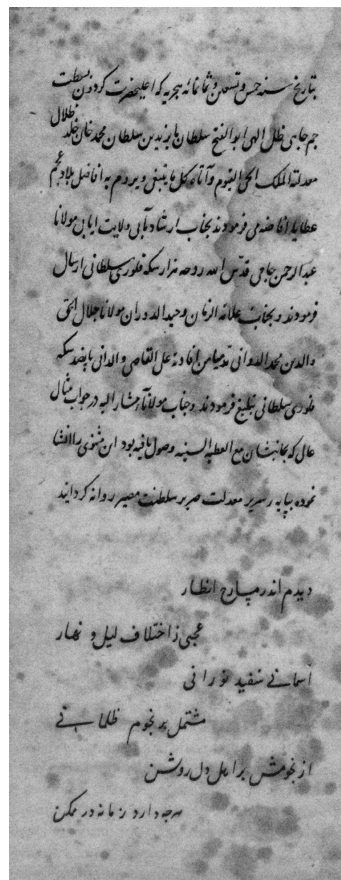 بتاریخ سنه خمس و تسعین و ثمانمائه هجریه که اعلیحضرت گردون بسطت
جم جاهی ظل الهی ابوالفتح سلطان بایزید بن سلطان محمد خان خلد ظلال
معدلته الملک الحی القیوم و آتاه کل ما یتبغی و یروم به افاضل بلاد عجم
عطایا افاضه می فرمودند بجناب ارشاد مآبی ولایت ایابی مولانا
عبدالرحمن جامی قدس الله روحه هزار سکه فلوری سلطانی ارسال
فرمودند و بجناب علامة الزمان وحید الدوران مولانا جلال الحق
والدین محمد الدوانی مد میامن افادته علی القاصی والدانی پانصد سکه
فلوری سلطانی تبلیغ فرمودند و جناب مولانا مشار الیه در جواب مثال
عالی که بجانبشان مع العطیة السنیه وصول یافته بود این مثنوی را انشا
نموده بپایه سریر معدلت صریر سلطنت مصیر روانه گردانید
دیدم اندر مپارح انظار
عجبی ز اختلاف لیل و نهار
آسمانی سفید نورانی
مشتمل بر نجوم ظلمانی
از نجومش بر اهل دل روشن
هرچه دارد زمانه در مکمن